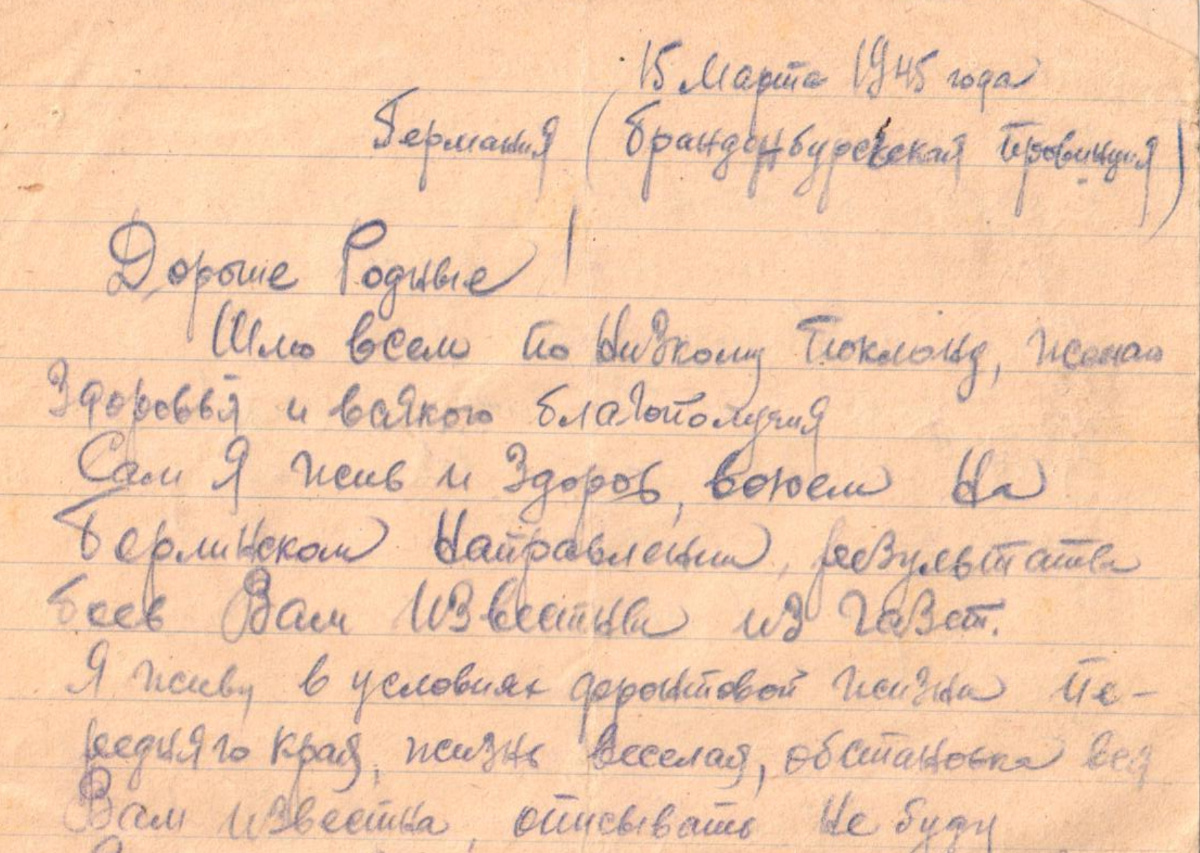 15 Марта 1945 года
Германия (Бранденбургская провинция)
Дорогие Родные!
Шлю всем по Низкому Поклону, желаю
Здоровья и всякого благополучия
Сам Я жив и Здоров, воюем На
Берлинском Направлении, результаты
боев Вам Известны из газет.
Я живу в условиях фронтовой жизни пе-
редняго края, жизнь веселая, обстановка вся
Вам известна, описывать Не буду